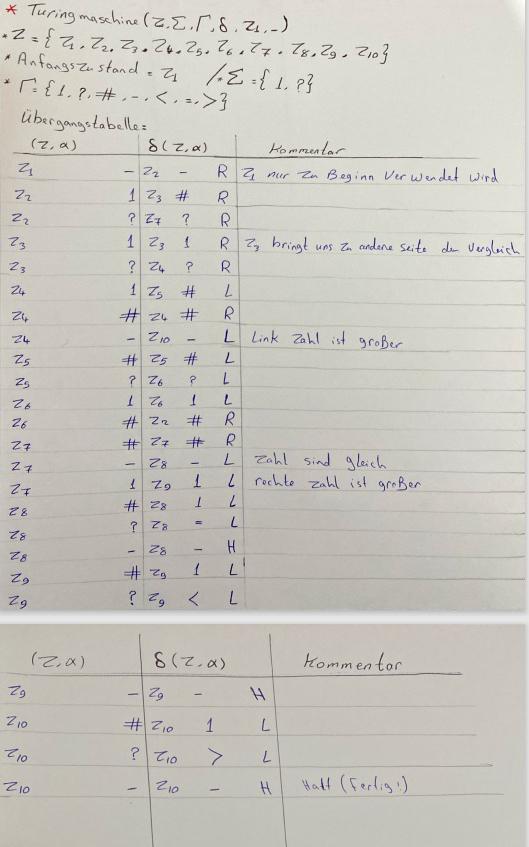 * Turingmaschine (Z, Σ, Γ, δ, Z1, -)
* Z = { Z1, Z2, Z3, Z4, Z5, Z6, Z7, Z8, Z9, Z10}
* Anfangszustand = Z1 /* Σ = { 1, ?}
* Γ = {1, ?, #, -, <, =, >}
Übergangstabelle:
(Z, α) δ (Z, α) Kommentar
Z1 - Z2 - R Z1 nur zu Beginn Verwendet wird
Z2 1 Z3 # R
Z2 ? Z7 ? R
Z3 1 Z3 1 R Z3 bringt uns zu andere seite der Vergleich
Z3 ? Z4 ? R
Z4 1 Z5 # L
Z4 # Z4 # R
Z4 - Z10 - L Link Zahl ist großer
Z5 # Z5 # L
Z5 ? Z6 ? L
Z6 1 Z6 1 L
Z6 # Z2 # R
Z7 # Z7 # R
Z7 - Z8 - L Zahl sind gleich
Z7 1 Z9 1 L rechte zahl ist großer
Z8 # Z8 1 L
Z8 ? Z8 = L
Z8 - Z8 - H
Z9 # Z9 1 L
Z9 ? Z9 < L
(Z, α) δ (Z, α) Kommentar
Z9 - Z9 - H
Z10 # Z10 1 L
Z10 ? Z10 > L
Z10 - Z10 - H Halt (Fertig!)